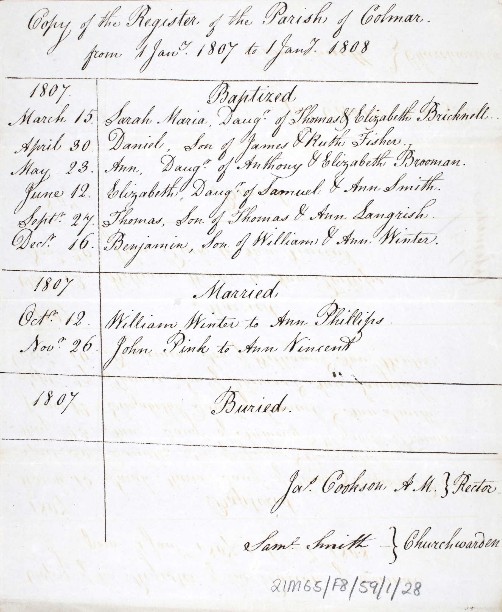 Copy of the Register of the Parish of Colmar.
from 1 Jany. 1807 to 1 Jany. 1808
1807. Baptized
March 15. Sarah Maria, Daugr. of Thomas & Elizabeth Bricknell.
April 30 Daniel, Son of James & Ruth Fisher.
May 23. Ann, Daugr. of Anthony & Elizabeth Brooman.
June 12. Elizabeth, Daugr. of Samuel & Ann Smith.
Septr. 27. Thomas, Son of Thomas & Ann Langrish.
Decr. 16. Benjamin, Son of William & Ann Winter.
1807 Married
Octr. 12. William Winter to Ann Phillips
Novr. 26 John Pink to Ann Vincent
1807 Buried.
Jas. Cookson A.M. } Rector
Saml. Smith } Churchwarden
21M65/F8/59/1/28